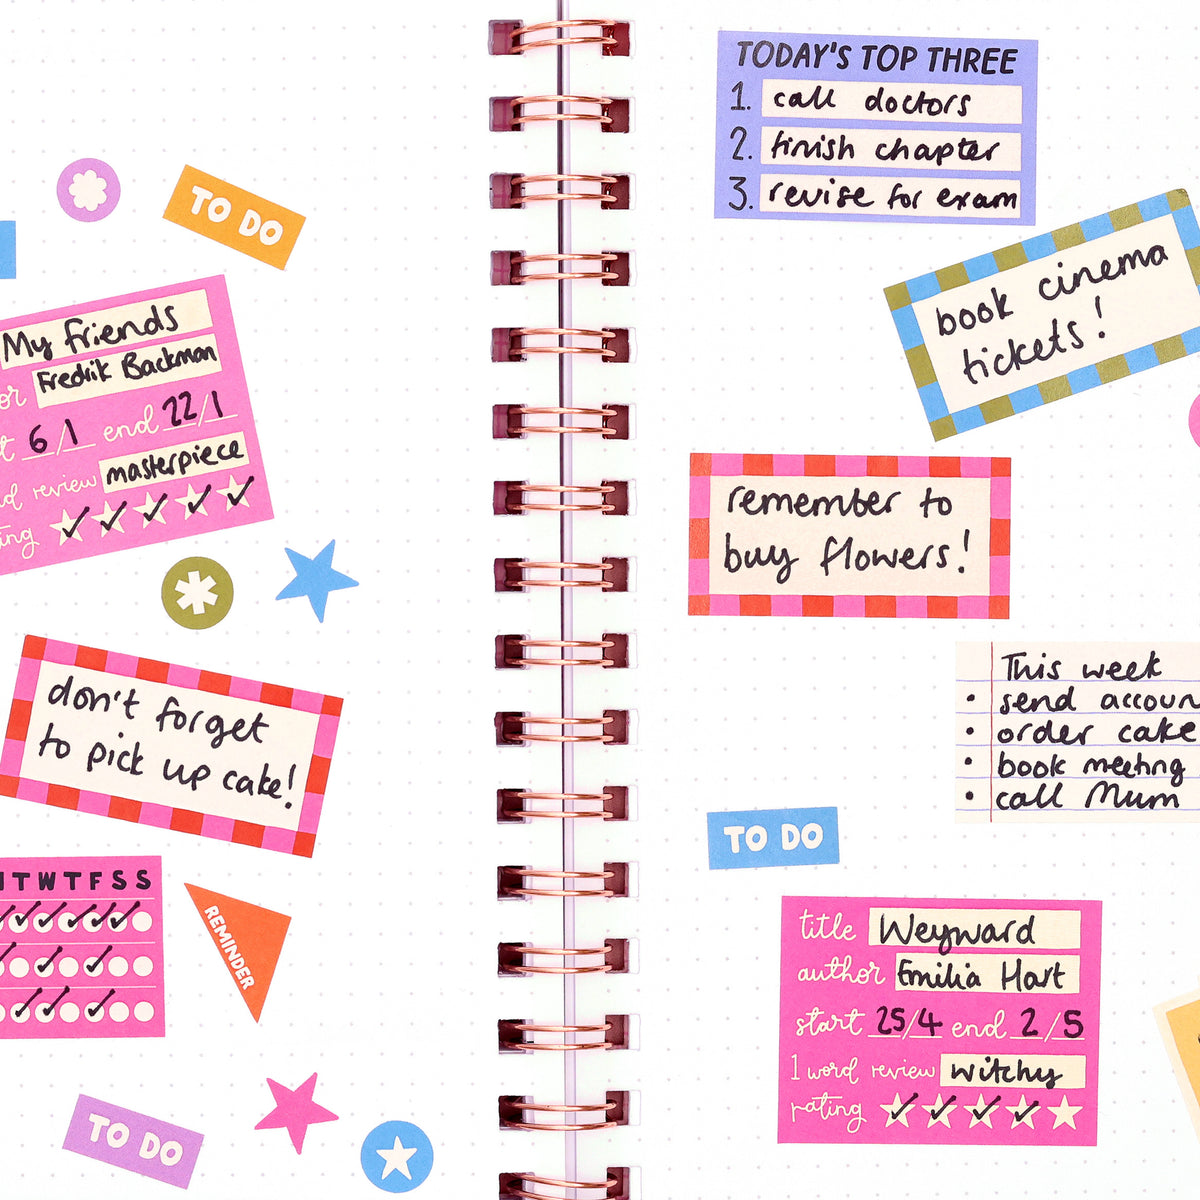 TO DO
My friends
or Fredrik Backman
t 6/1 end 22/1
d review masterpiece
ting
don't forget
to pick up cake!
T W T F S S
REMINDER
TO DO
TODAY'S TOP THREE
1. call doctors
2. finish chapter
3. revise for exam
book cinema
tickets!
remember to
buy flowers!
This week
• send accoun
• order cake
• book meeting
• call Mum
TO DO
title Weyward
author Emilia Hart
start 25/4 end 2/5
1 word review witchy
rating